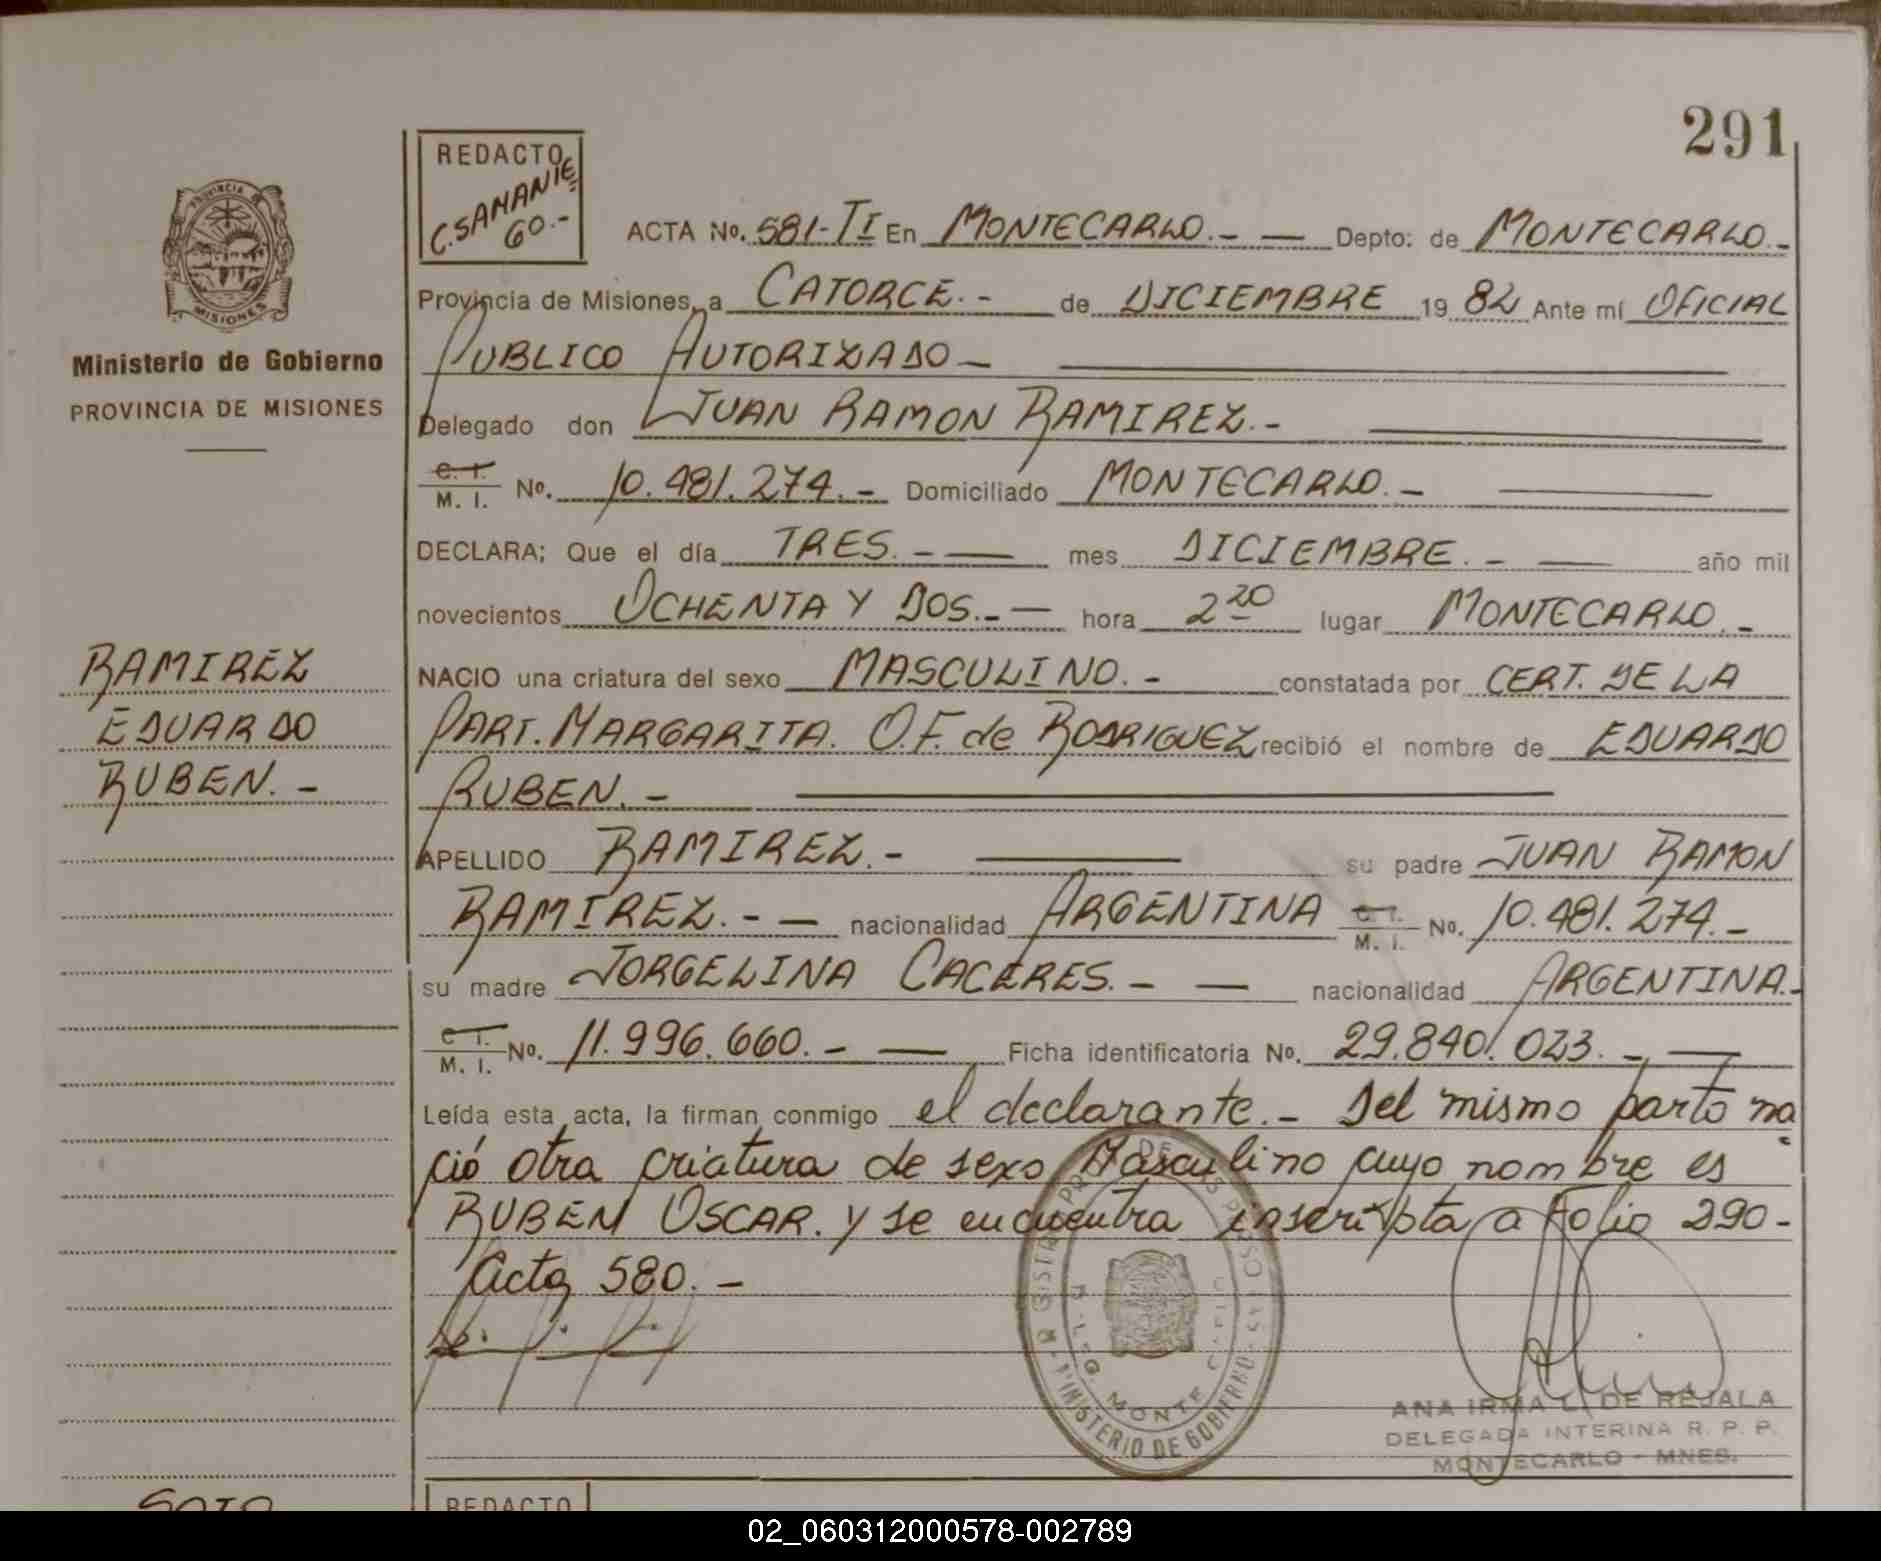 291
REDACTO
C. SAMANIE
GO.-
PROVINCIA DE
MISIONES
Ministerio de Gobierno
PROVINCIA DE MISIONES
ACTA No. 581-TI En MONTECARLO.- — Depto: de MONTECARLO.-
Provincia de Misiones, a CATORCE.- de DICIEMBRE 19 82 Ante mí OFICIAL
PUBLICO AUTORIZADO —
Delegado don JUAN RAMON RAMIREZ.-
C. I.
M. I. No. 10.481.274.- Domiciliado MONTECARLO.-
DECLARA; Que el día TRES.- — mes DICIEMBRE.- — año mil
novecientos OCHENTA Y DOS.- — hora 2 20 lugar MONTECARLO.-
NACIO una criatura del sexo MASCULINO.- constatada por CERT. DE LA
PART. MARGARITA. O.F. de RODRIGUEZ recibió el nombre de EDUARDO
RUBEN.-
APELLIDO RAMIREZ.- — su padre JUAN RAMON
RAMIREZ.- — nacionalidad ARGENTINA C. I. M. I. No. 10.481.274.-
su madre JORGELINA CACERES.- — nacionalidad ARGENTINA.-
C. I.
M. I. No. 11.996.660.- — Ficha identificatoria No. 29.840.023.- —
Leída esta acta, la firman conmigo el declarante.- Del mismo parto na
ció otra criatura de sexo Masculino cuyo nombre es
RUBEN OSCAR. y se encuentra inscripta a Folio 290-
Acta 580.-
RAMIREZ
EDUARDO
RUBEN.-
MINISTERIO DE GOBIERNO
DELEG. MONTE
ANA IRMA L. DE REJALA
DELEGADA INTERINA R. P. P.
MONTECARLO - MNES.
SOTO
REDACTO
02_060312000578-002789